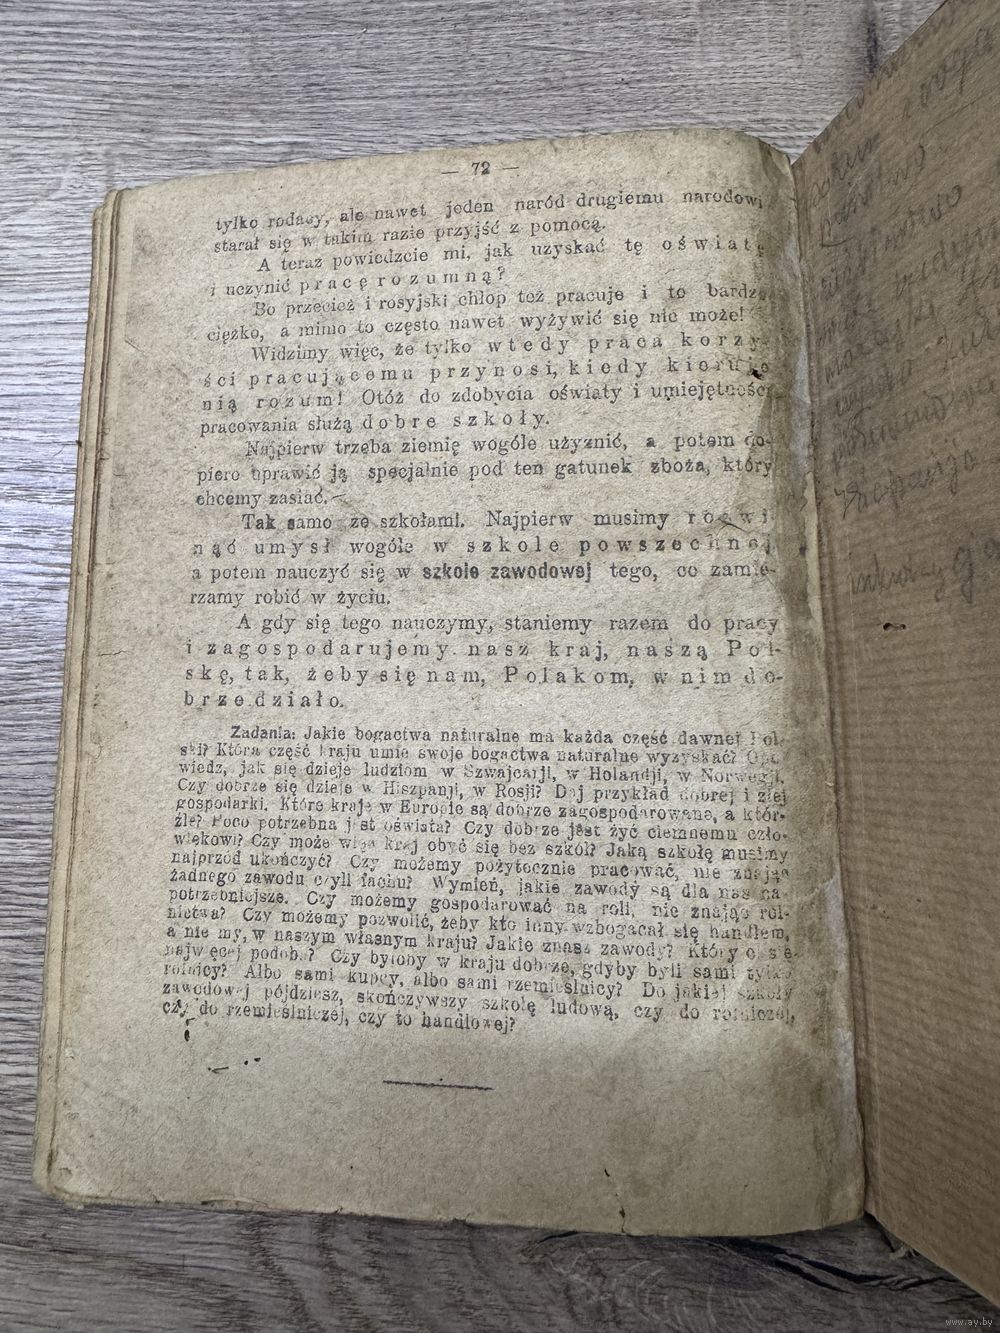 — 72 —
tylko rodacy, ale nawet jeden naród drugiemu narodowi
starał się w takim razie przyjść z pomocą.
A teraz powiedzcie mi, jak uzyskać tę oświatę
i uczynić pracę rozumną?
Bo przecież i rosyjski chłop też pracuje i to bardzo
ciężko, a mimo to często nawet wyżywić się nie może!
Widzimy więc, że tylko wtedy praca korzy-
ści pracującemu przynosi, kiedy kieruje
nią rozum! Otóż do zdobycia oświaty i umiejętności
pracowania służą dobre szkoły.
Najpierw trzeba ziemię wogóle użyznić, a potem do-
piero uprawić ją specjalnie pod ten gatunek zboża, który
chcemy zasiać.
Tak samo ze szkołami. Najpierw musimy rozwi
nąć umysł wogóle w szkole powszechnej
a potem nauczyć się w szkole zawodowej tego, co zamie-
rzamy robić w życiu.
A gdy się tego nauczymy, staniemy razem do pracy
i zagospodarujemy nasz kraj, naszą Pol-
skę, tak, żeby się nam, Polakom, w nim do-
brze działo.
Zadania: Jakie bogactwa naturalne ma każda część dawnej Pol-
ski? Która część kraju umie swoje bogactwa naturalne wyzyskać? Opo
wiedz, jak się dzieje ludziom w Szwajcarji, w Holandji, w Norwegji.
Czy dobrze się dzieje w Hiszpanji, w Rosji? Daj przykład dobrej i złej
gospodarki. Które kraje w Europie są dobrze zagospodarowane, a któr-
źle? Poco potrzebna jest oświata? Czy dobrze jest żyć ciemnemu czło-
wiekowi? Czy może więc kraj obyć się bez szkół? Jaką szkołę musimy
najprzód ukończyć? Czy możemy pożytecznie pracować, nie znając
żadnego zawodu czyli fachu? Wymień, jakie zawody są dla nas na-
potrzebniejsze. Czy możemy gospodarować na roli, nie znając rol-
nictwa? Czy możemy pozwolić, żeby kto inny wzbogacał się handlem,
a nie my, w naszym własnym kraju? Jakie znasz zawody? Który ci się
najwięcej podoba? Czy byłoby w kraju dobrze, gdyby byli sami tylko
rolnicy? Albo sami kupcy, albo sami rzemieślnicy? Do jakiej szkoły
zawodowej pójdziesz, skończywszy szkołę ludową, czy do rolniczej,
czy do rzemieślniczej, czy to handlowej?
www.ay.by